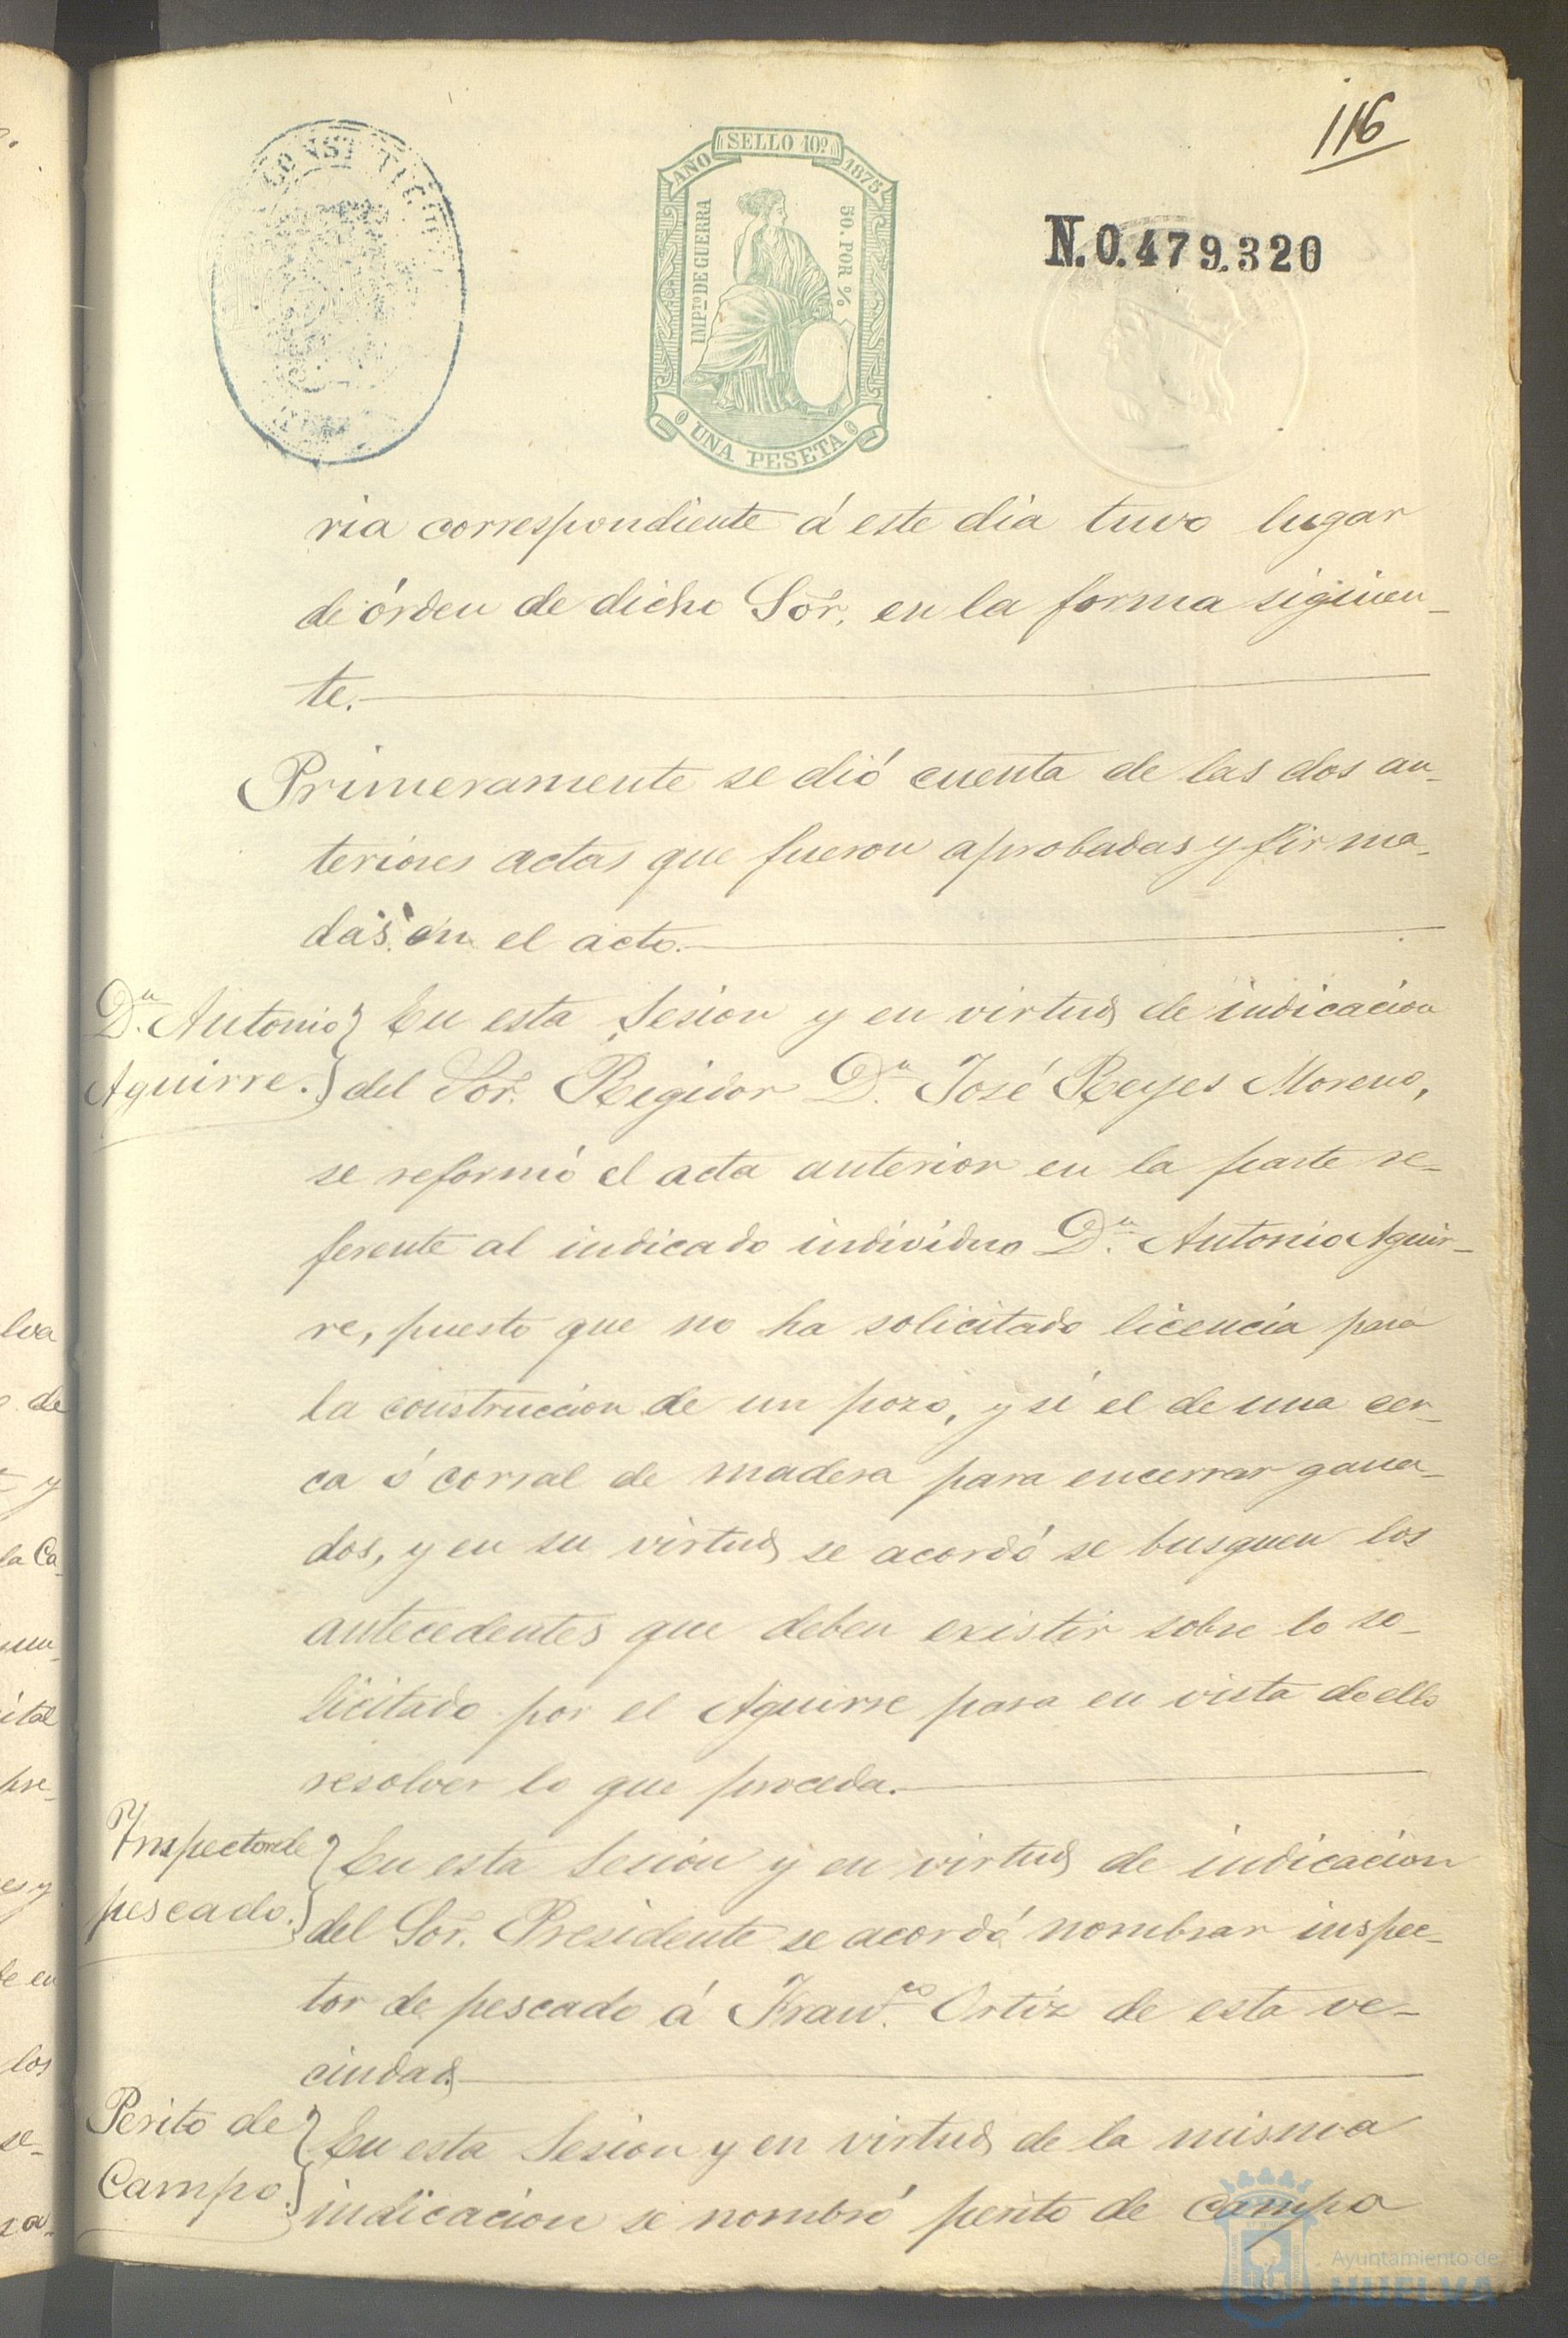 116
CONSTITUCI
AÑO SELLO 10º 1875
IMPTO DE GUERRA
50. POR %
UNA PESETA
N.0.479.320
ria correspondiente á este dia tuvo lugar
de órden de dicho Sor. en la forma siguien-
te.
Primeramente se dió cuenta de las dos an-
teriores actas que fueron aprobadas y firma-
das en el acto.
Dn. Antonio
Aguirre.
En esta Sesion y en virtud de indicacion
del Sor. Regidor Dn. José Reyes Moreno,
se reformó el acta anterior en la parte re-
ferente al indicado individuo Dn. Antonio Aguir-
re, puesto que no ha solicitado licencia para
la construccion de un pozo, y si el de una cer-
ca ó corral de madera para encerrar gana-
dos, y en su virtud se acordó se busquen los
antecedentes que deben existir sobre lo so-
licitado por el Aguirre para en vista de ello
resolver lo que proceda.
Inspector de
pescado.
En esta Sesion y en virtud de indicacion
del Sor. Presidente se acordó nombrar inspec-
tor de pescado á Franco. Ortiz de esta ve-
cindad.
Perito de
Campo.
En esta Sesion y en virtud de la misma
indicacion se nombró perito de campo
lva
de
y
la Ca-
ital
pre-
es y
los
se-
Ayuntamiento de
HUELVA